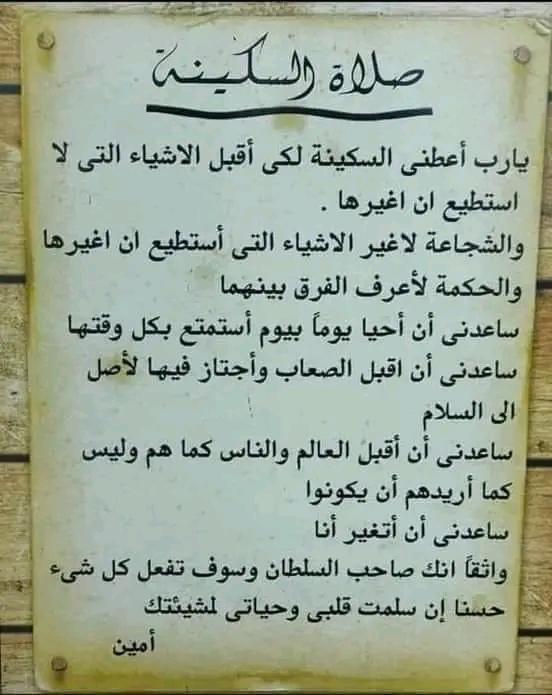 صلاة السكينة
يارب أعطنى السكينة لكى أقبل الاشياء التى لا
استطيع ان اغيرها .
والشجاعة لاغير الاشياء التى أستطيع ان اغيرها
والحكمة لأعرف الفرق بينهما
ساعدنى أن أحيا يوماً بيوم أستمتع بكل وقتها
ساعدنى أن اقبل الصعاب وأجتاز فيها لأصل
الى السلام
ساعدنى أن أقبل العالم والناس كما هم وليس
كما أريدهم أن يكونوا
ساعدنى أن أتغير أنا
واثقاً انك صاحب السلطان وسوف تفعل كل شىء
حسنا إن سلمت قلبى وحياتى لمشيئتك
أمين